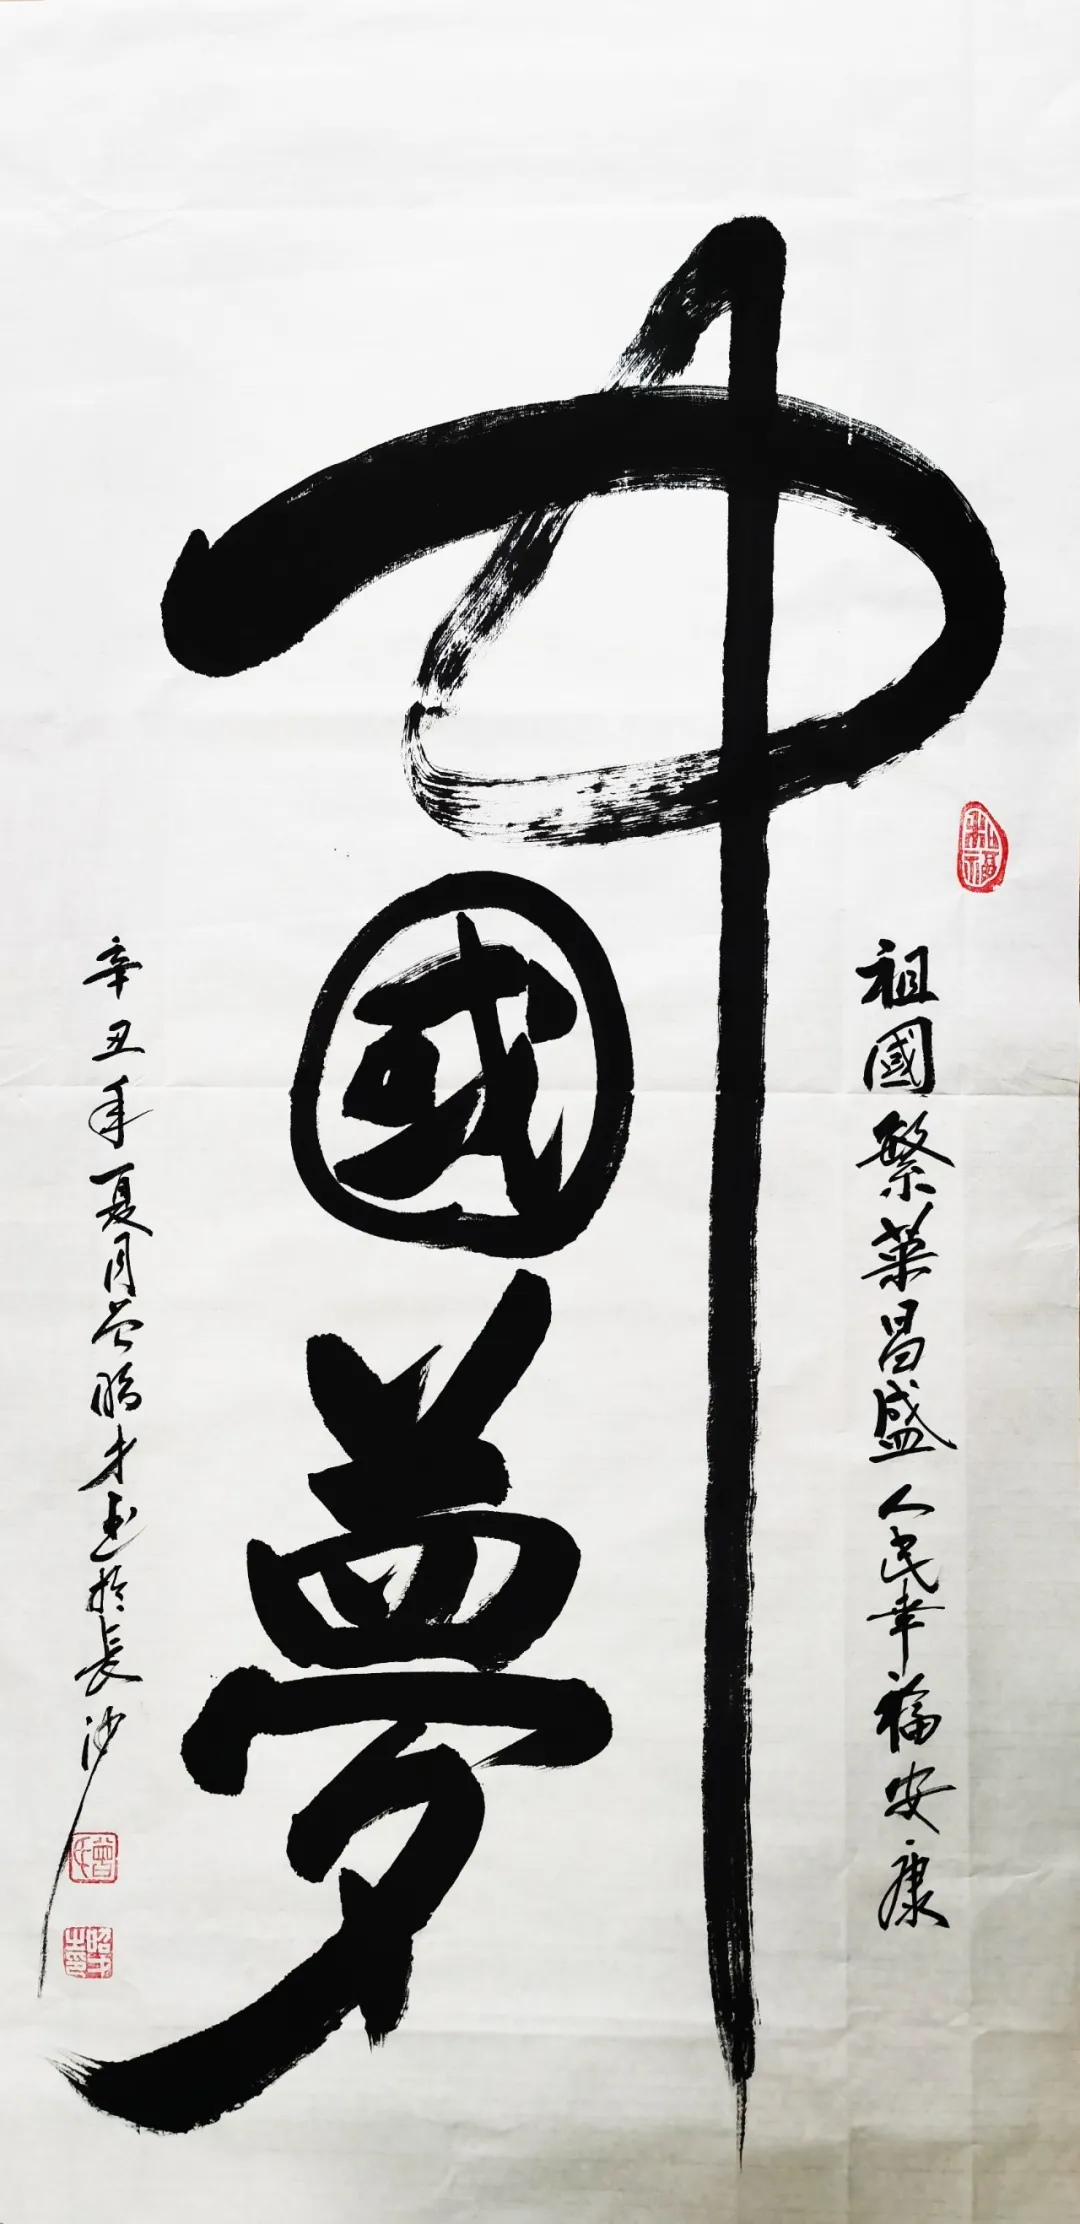 中國夢
祖國繁榮昌盛人民幸福安康
辛丑年夏月曾昭才書於長沙
曾氏
昭才之印